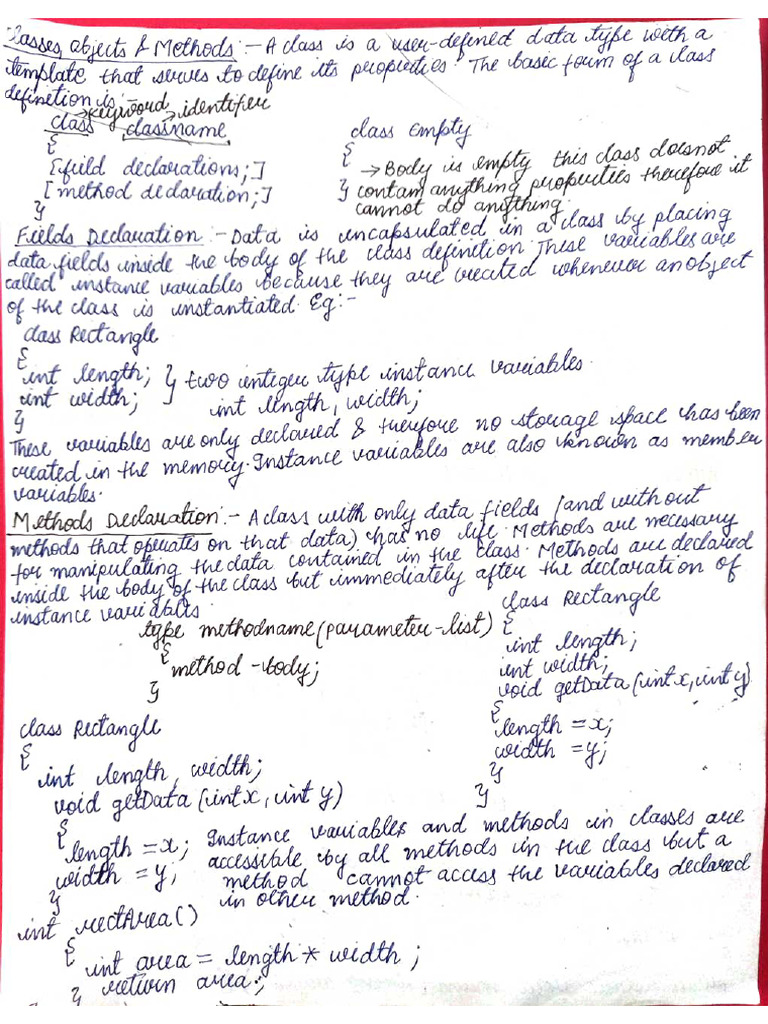 Classes, objects & Methods :- A class is a user-defined data type with a
template that serves to define its properties. The basic form of a class
definition is:
→keyword →identifier
class classname
{
[field declarations;]
[method declaration;]
}
class Empty
{
→Body is empty this class doesnot
} contain anything properties therefore it
cannot do anything.
Fields Declaration :- Data is encapsulated in a class by placing
data fields inside the body of the class definition. These variables are
called instance variables because they are created whenever an object
of the class is instantiated. Eg:-
class Rectangle
{
int length; } two integer type instance variables.
int width; int length, width;
}
These variables are only declared & therefore no storage space has been
created in the memory. Instance variables are also known as member
variables.
Methods Declaration :- A class with only data fields (and without
methods that operates on that data) has no life. Methods are necessary
for manipulating the data contained in the class. Methods are declared
inside the body of the class but immediately after the declaration of
instance variables.
type methodname(parameter-list)
{
method-body;
}
class Rectangle
{
int length;
int width;
void getData(int x, int y)
{
length = x;
width = y;
}
}
class Rectangle
{
int length, width;
void getData (int x, int y)
{
length = x;
width = y;
}
Instance variables and methods in classes are
accessible by all methods in the class but a
method cannot access the variables declared
in other method.
int rectArea()
{
int area = length * width ;
return area;
}